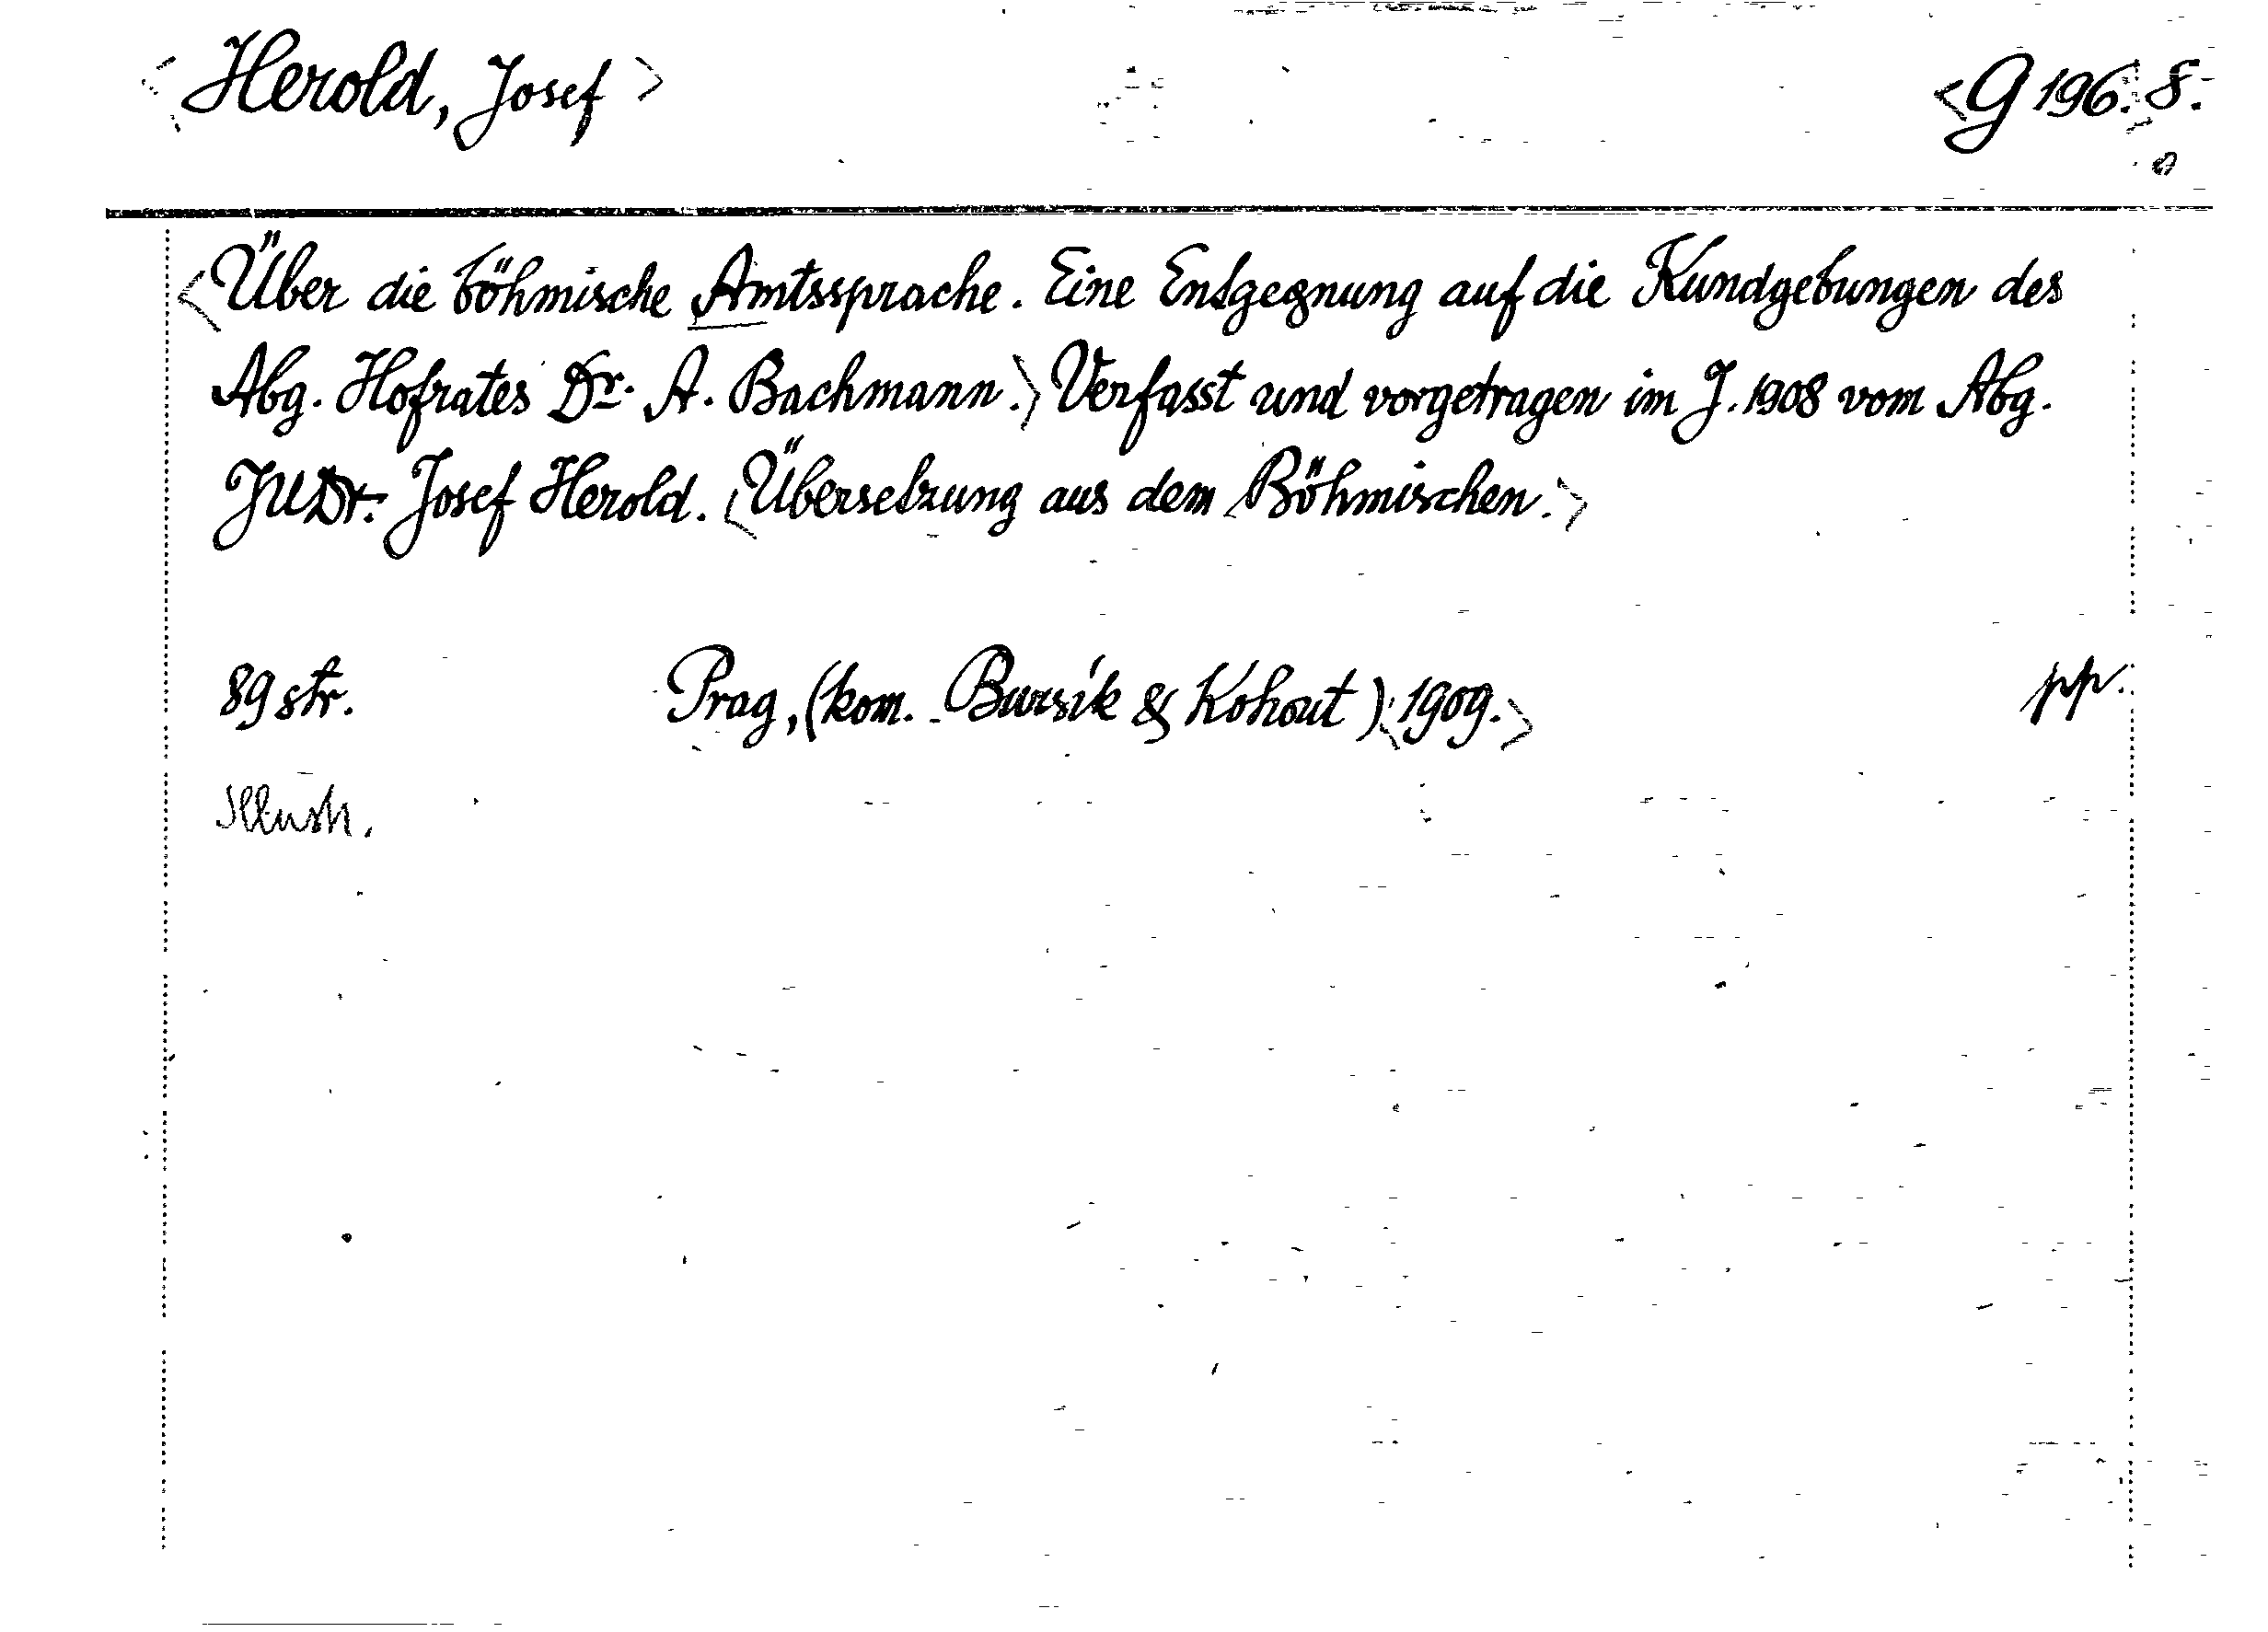 <Herold, Josef> <G 196. 8.
<Über die böhmische Amtssprache. Eine Entgegnung auf die Kundgebungen des
Abg. Hofrates Dr. A. Bachmann.> Verfasst und vorgetragen im J. 1908 vom Abg.
JUDr. Josef Herold. <Übersetzung aus dem Böhmischen.>
89 str. Prag, (kom. Bursík & Kohout) <1909.> pp.
Illustr.